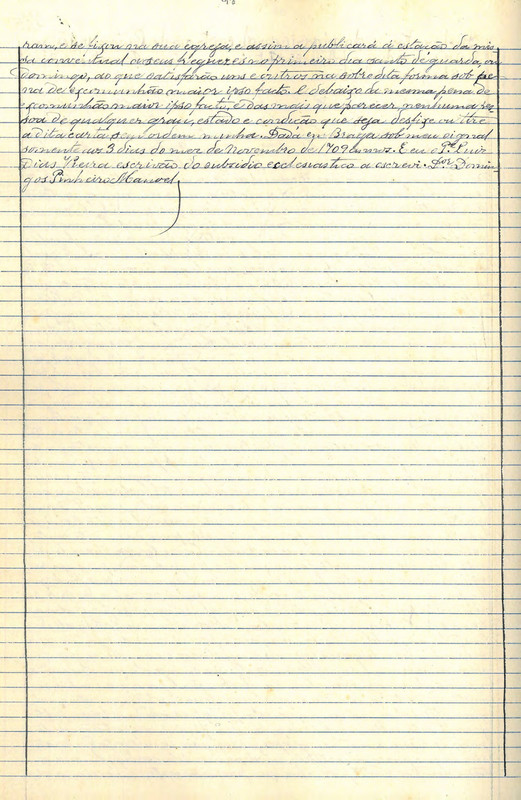 ram, e se fixou na sua egreja, e assim a publicará á estação da mis
sa conventual a seus freguezes no primeiro dia santo de guarda, ou
Domingo, ao que satisfarão uns e outros na sobredita forma sob pe
na de excommunhão maior ipso facto. E debaixo da mesma pena de
excommunhão maior ipso facto, e das mais que parecer, nenhuma pes
soa de qualquer grau, estado e condição que seja desfixe ou tire
a dita carta sem ordem minha. Dada em Braga sob meu signal
somente aos 3 dias do mez de Novembro de 1709 annos. E eu o Pe. Luiz
Dias Vieira escrivão do subsidio ecclesiastico a escrevi. Dor. Domin
gos Pinheiro Manoel